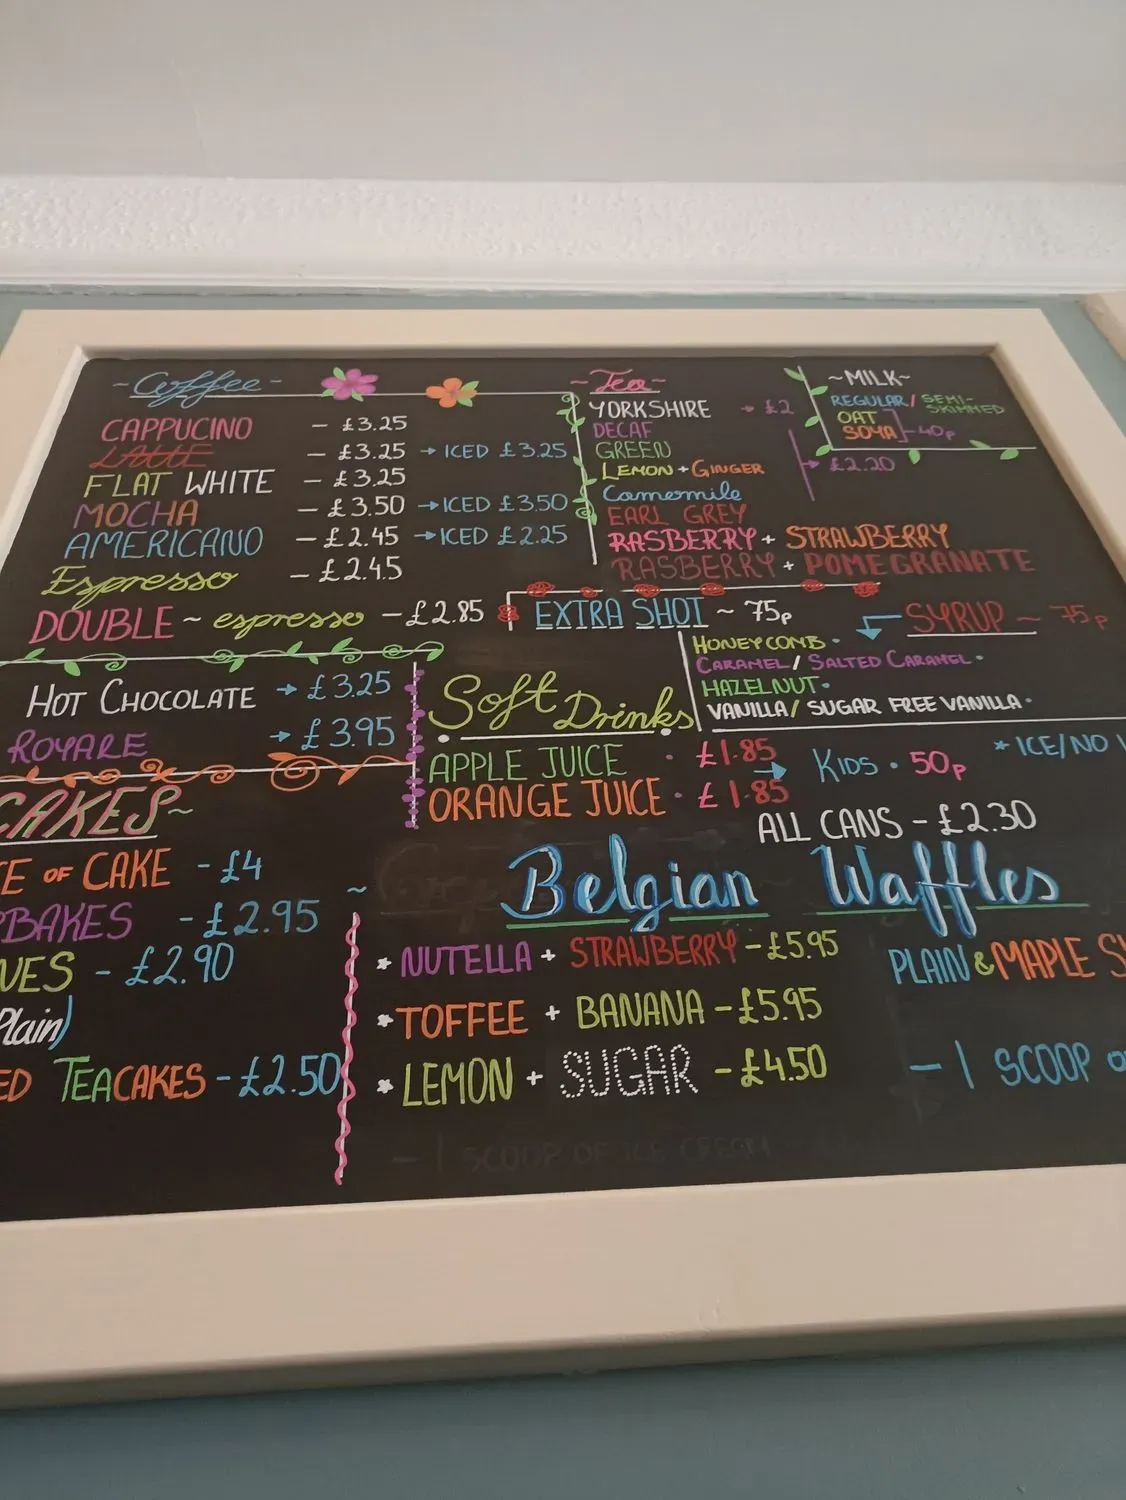 ~Coffee~
CAPPUCINO - £3.25
LATTE - £3.25 → ICED £3.25
FLAT WHITE - £3.25
MOCHA - £3.50 → ICED £3.50
AMERICANO - £2.45 → ICED £2.25
Espresso - £2.45
DOUBLE ~ espresso - £2.85
~Tea~
YORKSHIRE → £2
DECAF
GREEN
LEMON + GINGER → £2.20
Camomile
EARL GREY
RASBERRY + STRAWBERRY
RASBERRY + POMEGRANATE
~MILK~
REGULAR / SEMI-SKIMMED
OAT
SOYA - 40p
EXTRA SHOT ~ 75p
SYRUP ~ 75p
HONEYCOMB •
CARAMEL / SALTED CARAMEL •
HAZELNUT •
VANILLA / SUGAR FREE VANILLA •
HOT CHOCOLATE → £3.25
ROYALE → £3.95
Soft Drinks
APPLE JUICE • £1.85
ORANGE JUICE • £1.85
→ KIDS • 50p
* ICE/NO
ALL CANS - £2.30
CAKES~
E OF CAKE - £4
BAKES - £2.95
NES - £2.90
Plain)
ED TEACAKES - £2.50
~ Belgian Waffles
* NUTELLA + STRAWBERRY - £5.95
* TOFFEE + BANANA - £5.95
* LEMON + SUGAR - £4.50
PLAIN & MAPLE S
- 1 SCOOP O
- 1 SCOOP OF ICE CREAM